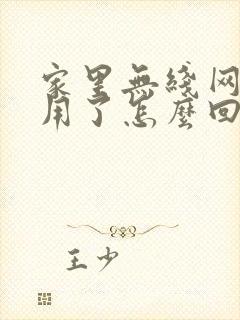 家里无线网
用了怎么回
王少